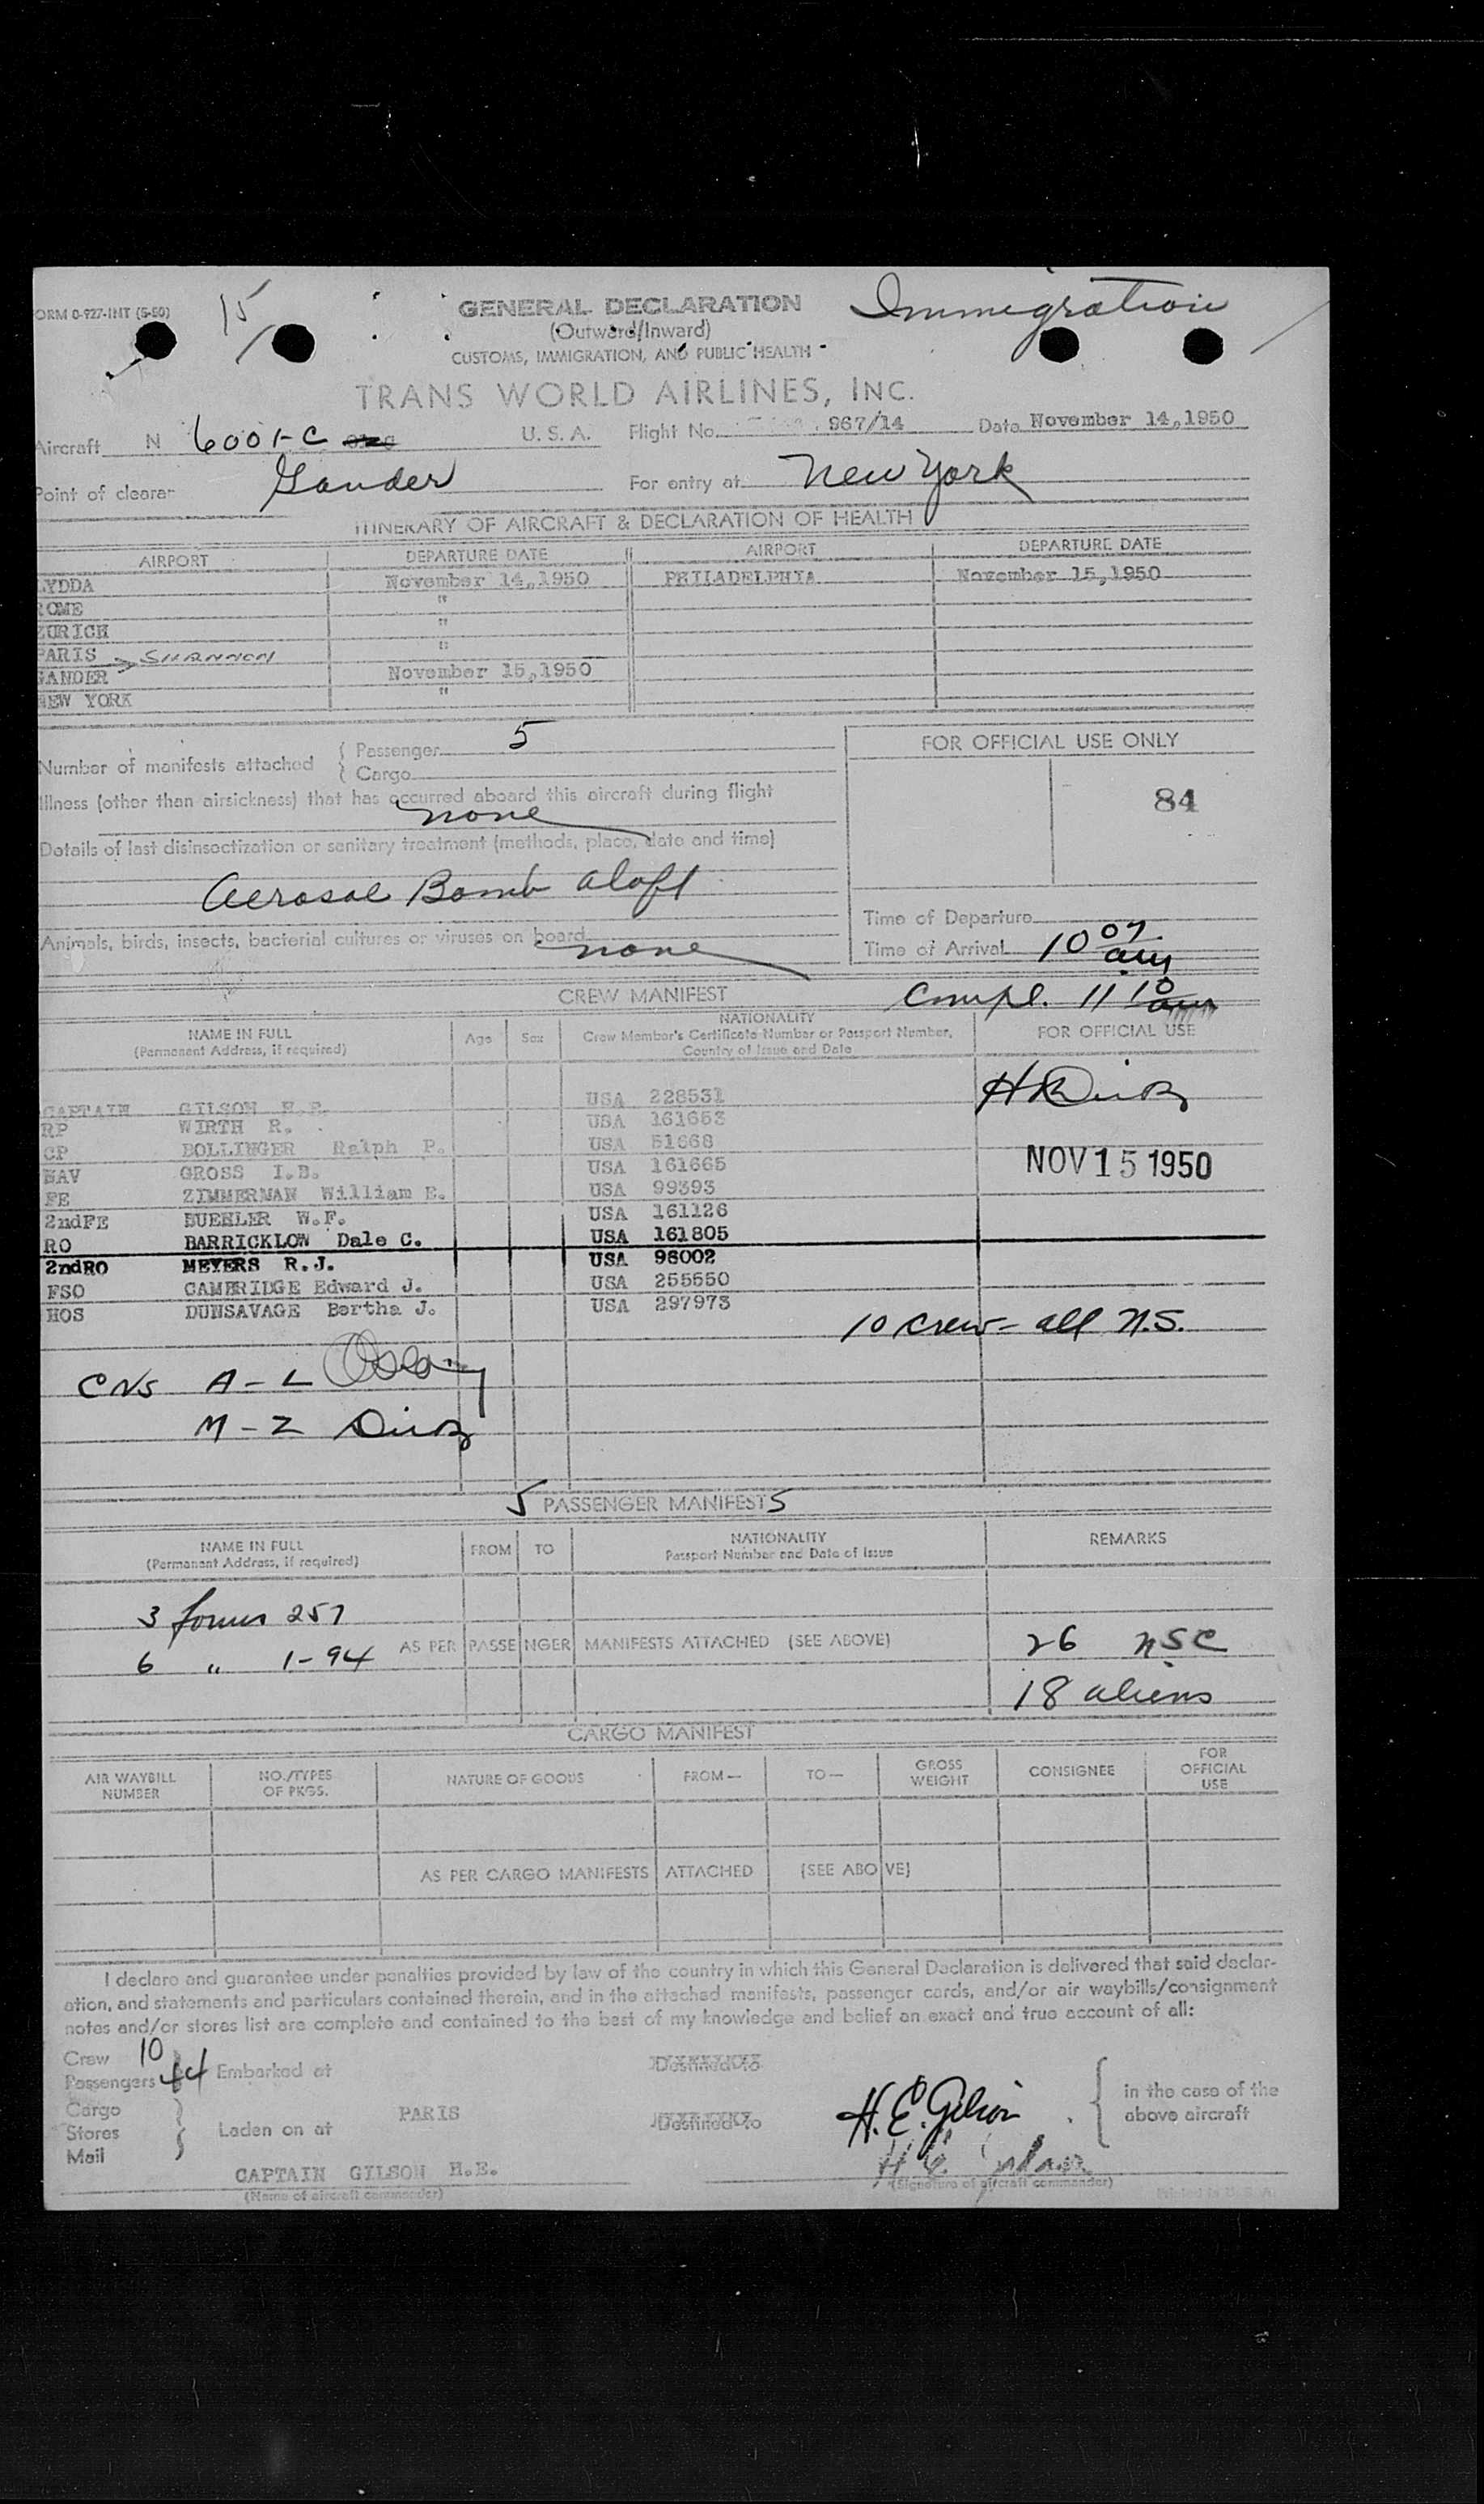 ORM 0-927-INT (5-50)
15
GENERAL DECLARATION
Immigration
(Outward/Inward)
CUSTOMS, IMMIGRATION, AND PUBLIC HEALTH
TRANS WORLD AIRLINES, INC.
Aircraft N 6001-C U. S. A. Flight No. 967/14 Date November 14,1950
Point of clearar Gander For entry at New York
ITINERARY OF AIRCRAFT & DECLARATION OF HEALTH
AIRPORT DEPARTURE DATE AIRPORT DEPARTURE DATE
LYDDA November 14,1950 PHILADELPHIA November 15,1950
ROME "
ZURICH "
PARIS > SHANNON "
GANDER November 15,1950
NEW YORK "
Number of manifests attached { Passenger 5
{ Cargo
FOR OFFICIAL USE ONLY
84
Illness (other than airsickness) that has occurred aboard this aircraft during flight
none
Details of last disinsectization or sanitary treatment (methods, place, date and time)
Aerosol Bomb aloft
Animals, birds, insects, bacterial cultures or viruses on board none
Time of Departure
Time of Arrival 10 07 am
Compl. 11 10 am
CREW MANIFEST
NAME IN FULL (Permanent Address, if required) Age Sex NATIONALITY Crew Member's Certificate Number or Passport Number, Country of Issue and Date FOR OFFICIAL USE
CAPTAIN GILSON USA 228531
RP WIRTH R. USA 161653
CP BOLLINGER Ralph P. USA 51668
NAV GROSS I.B. USA 161665
FE ZIMMERMAN William E. USA 99393
2ndFE BUEHLER W.F. USA 161126
RO BARRICKLOW Dale C. USA 161805
2ndRO MEYERS R.J. USA 96002
FSO CAMBRIDGE Edward J. USA 255550
HOS DUNSAVAGE Bertha J. USA 297973
NOV 15 1950
10 crew - all N.S.
CNS A - L
M - Z
5 PASSENGER MANIFESTS
NAME IN FULL (Permanent Address, if required) FROM TO NATIONALITY Passport Number and Date of Issue REMARKS
3 forms 257
6 " 1-94 AS PER PASSENGER MANIFESTS ATTACHED (SEE ABOVE) 26 NSC
18 aliens
CARGO MANIFEST
AIR WAYBILL NUMBER NO./TYPES OF PKGS. NATURE OF GOODS FROM — TO — GROSS WEIGHT CONSIGNEE FOR OFFICIAL USE
AS PER CARGO MANIFESTS ATTACHED (SEE ABOVE)
I declare and guarantee under penalties provided by law of the country in which this General Declaration is delivered that said declar-
ation, and statements and particulars contained therein, and in the attached manifests, passenger cards, and/or air waybills/consignment
notes and/or stores list are complete and contained to the best of my knowledge and belief an exact and true account of all:
Crew 10
Passengers 44 Embarked at Destined to
Cargo
Stores Laden on at PARIS Destined to
Mail
H.E. Gilson
in the case of the
above aircraft
CAPTAIN GILSON H.E.
(Name of aircraft commander) (Signature of aircraft commander) Printed in U. S. A.